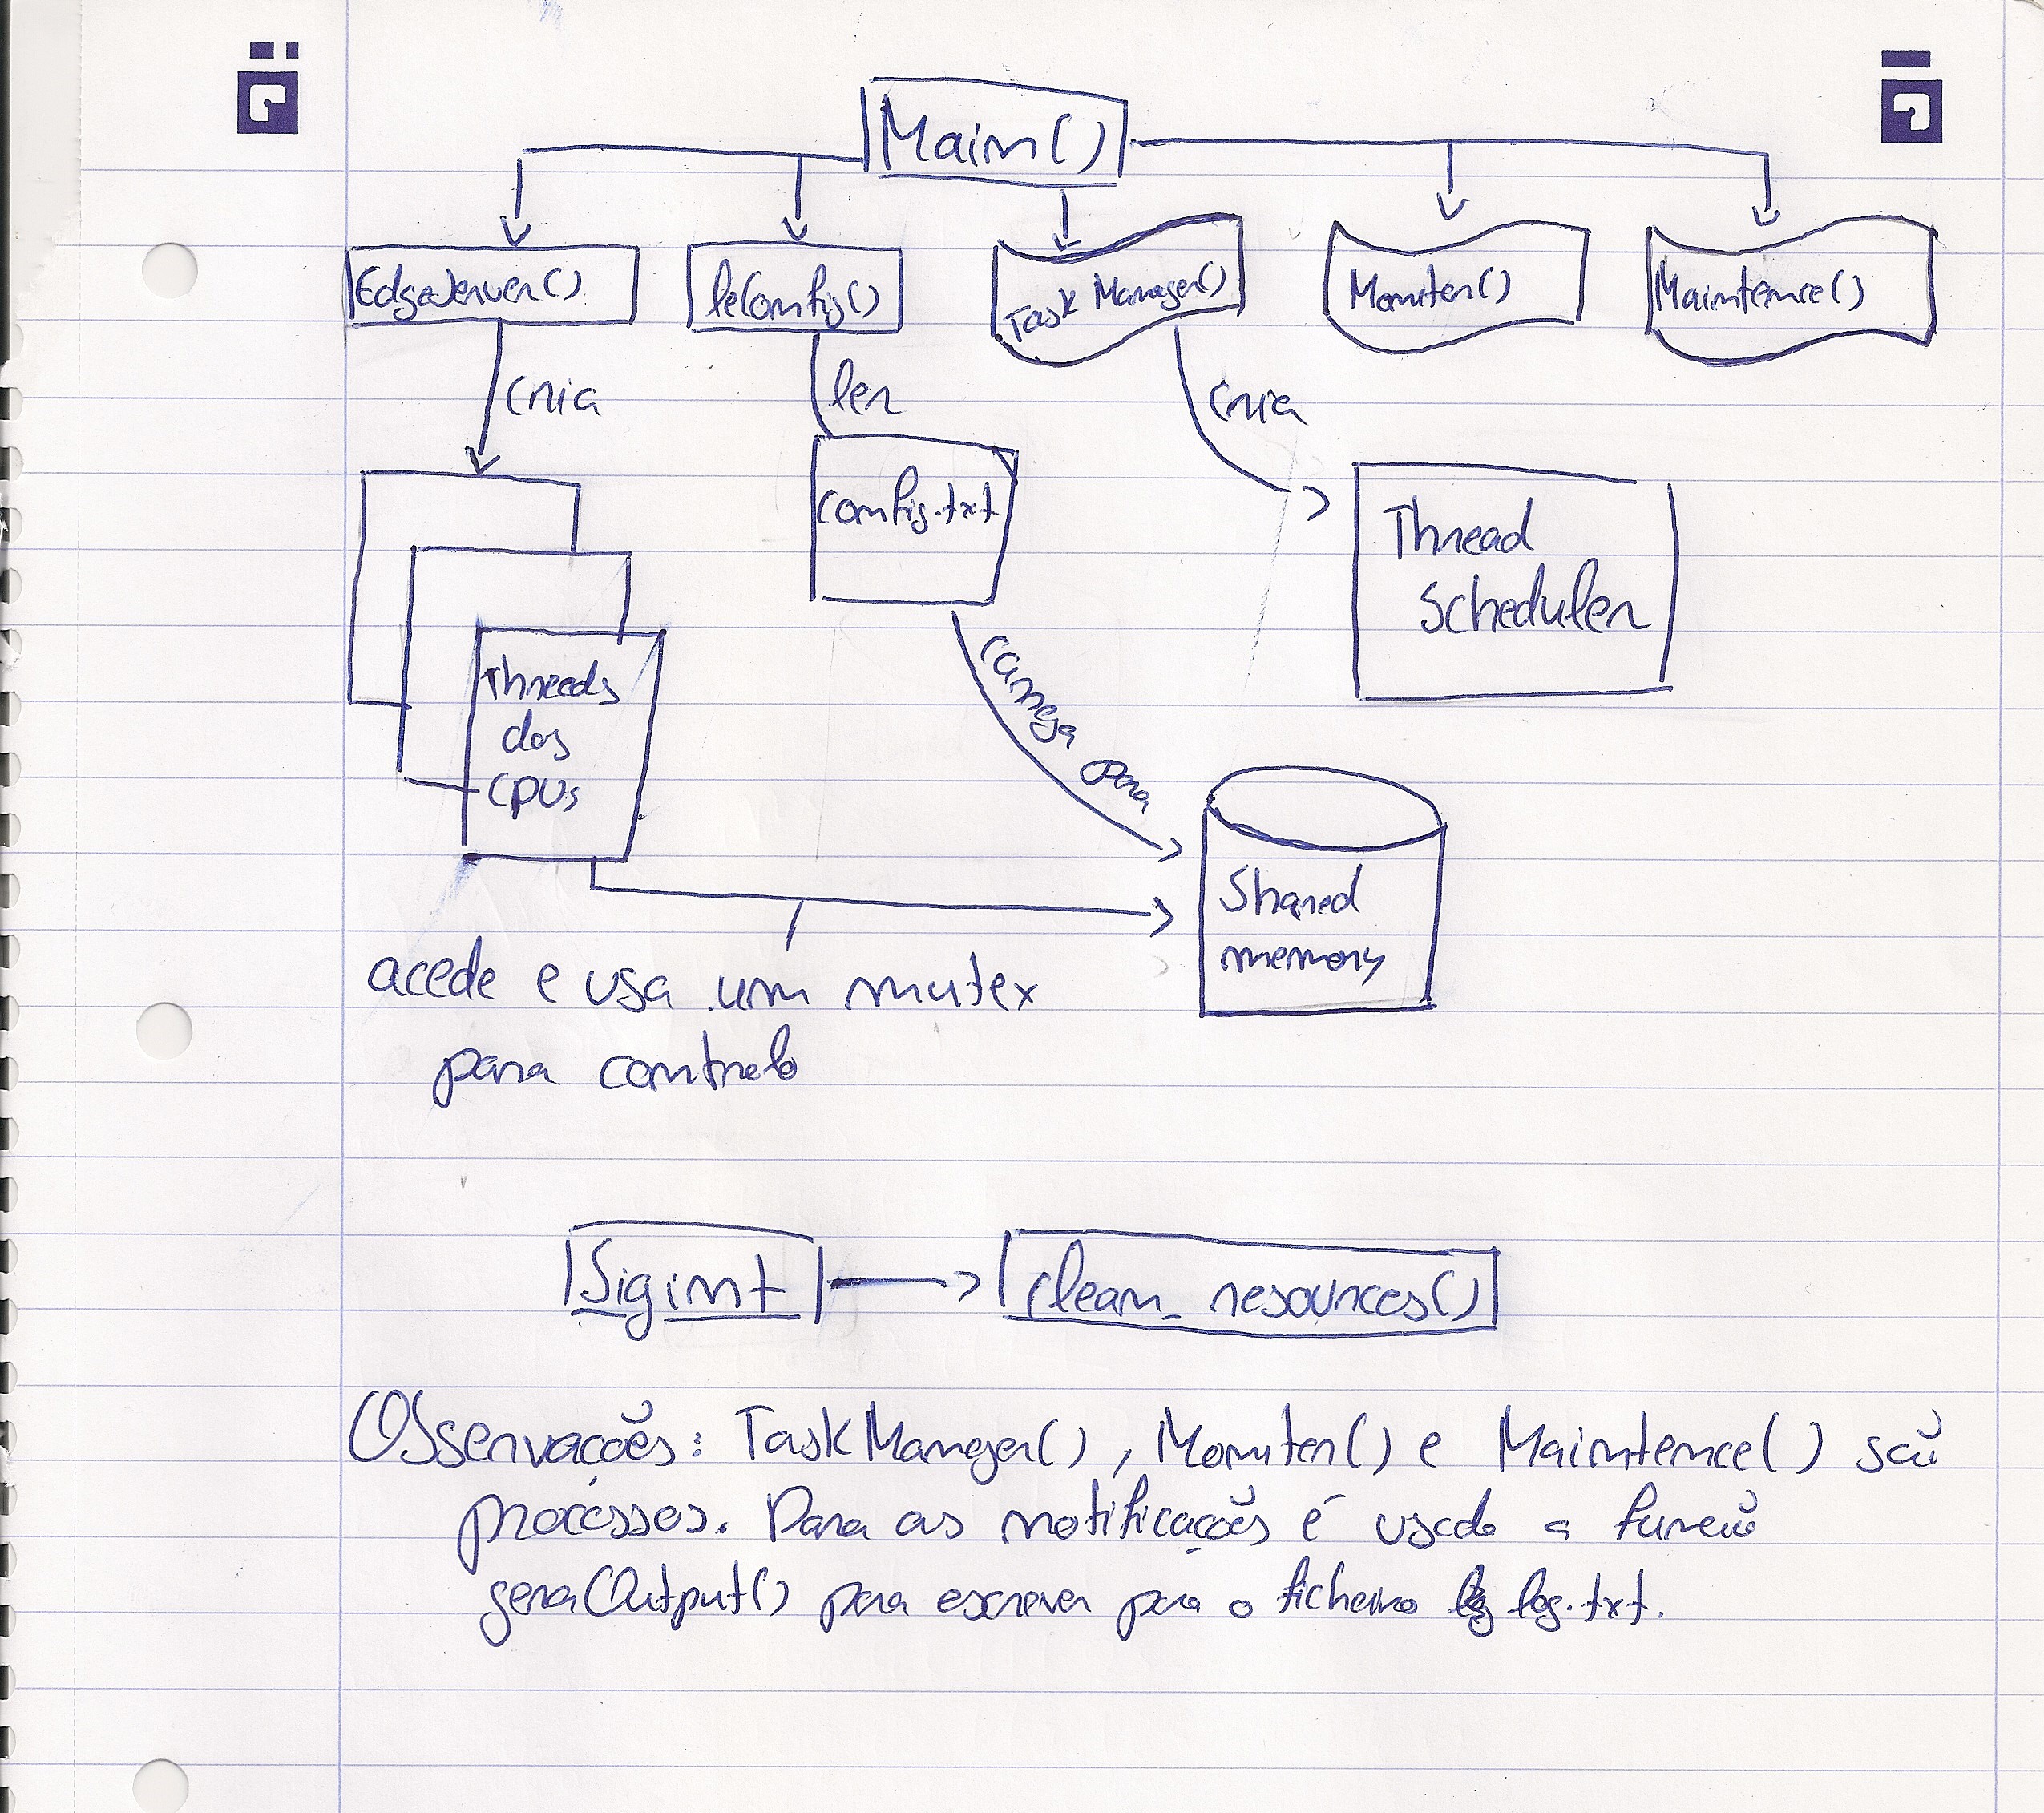 Main()
EdgeServer()
leConfig()
Task Manager()
Moniter()
Maintence()
cria
ler
cria
config.txt
Thread
Scheduler
Threads
dos
CPUs
carrega para
Shared
memory
acede e usa um mutex
para controlo
Sigint
clean_resources()
Observações: TaskManager(), Moniter() e Maintence() são
processos. Para as notificações é usado a função
geraOutput() para escrever para o ficheiro log.txt.